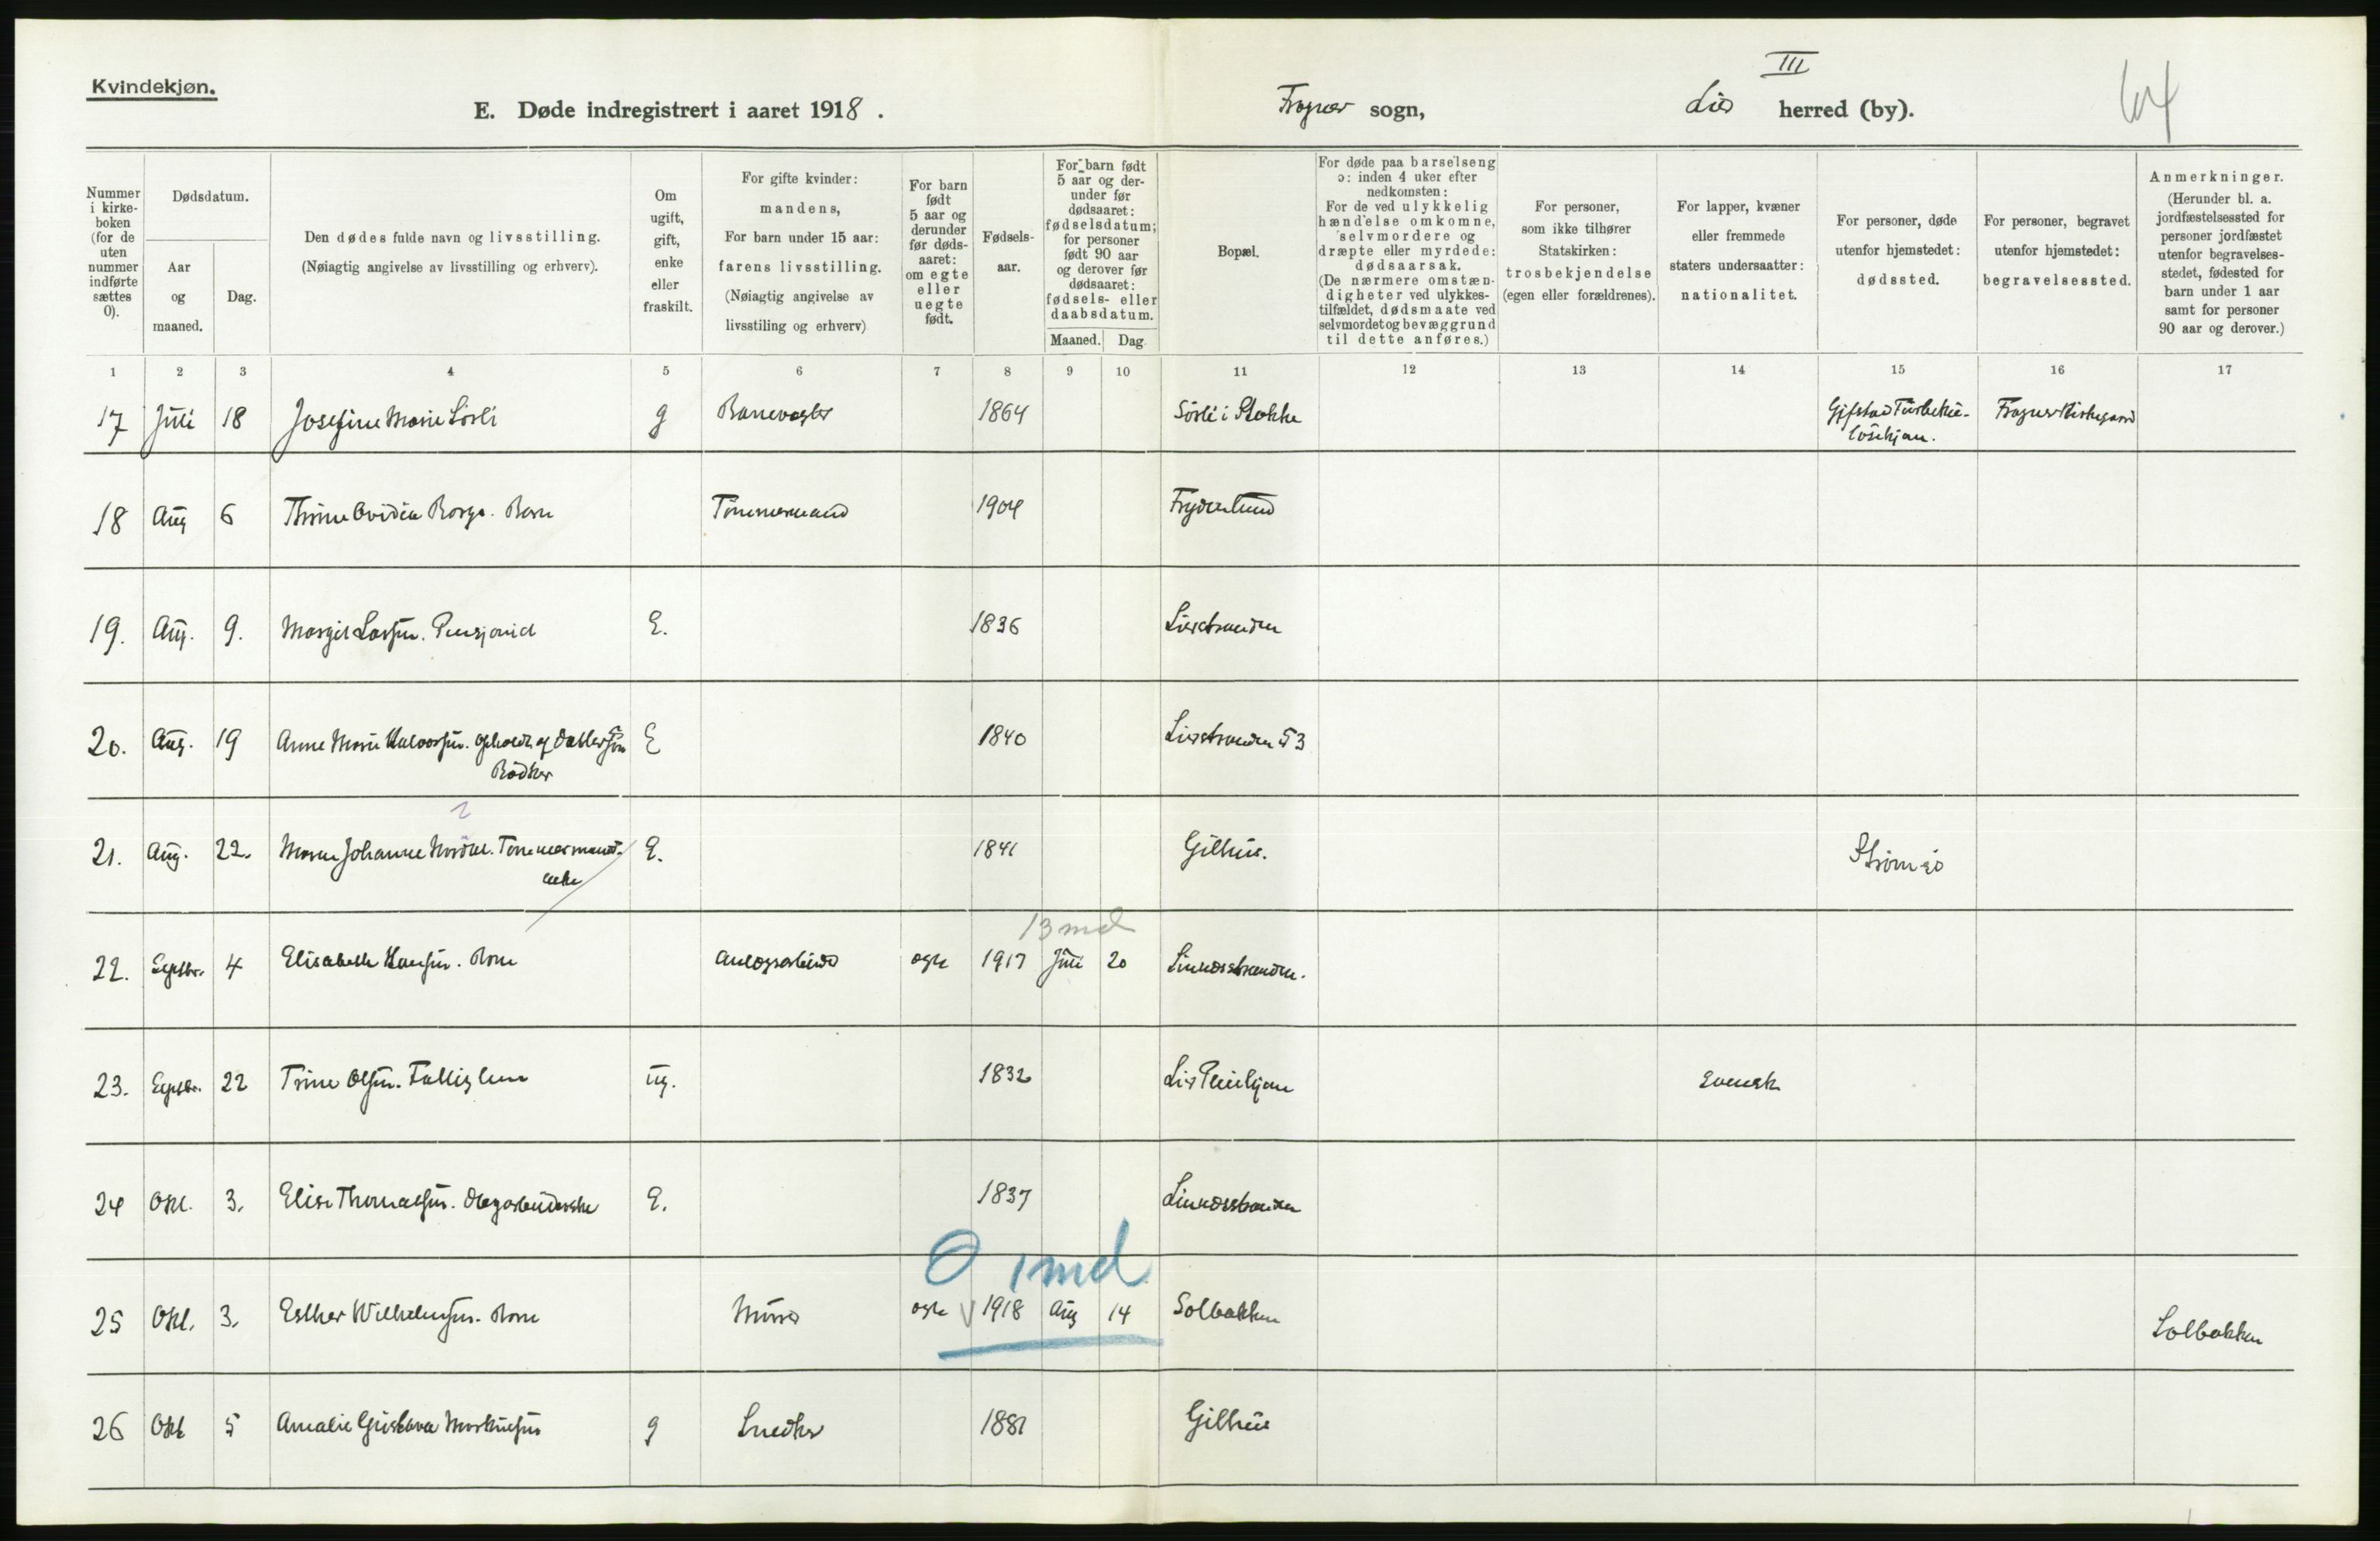 III
Kvindekjøn.
E. Døde indregistrert i aaret 1918. Frogner sogn, Lier herred (by).
64
Nummer i kirke-boken (for de uten nummer indførte sættes 0).
Dødsdatum.
Aar og maaned.
Dag.
Den dødes fulde navn og livsstilling.
(Nøiagtig angivelse av livsstilling og erhverv).
Om ugift, gift, enke eller fraskilt.
For gifte kvinder: mandens,
For barn under 15 aar: farens livsstilling.
(Nøiagtig angivelse av livsstiling og erhverv)
For barn født 5 aar og derunder før døds-aaret: om egte eller uegte født.
Fødsels-aar.
For barn født 5 aar og der-under før dødsaaret: fødselsdatum; for personer født 90 aar og derover før dødsaaret: fødsels- eller daabsdatum.
Maaned. Dag
Bopæl.
For døde paa barselseng ɔ: inden 4 uker efter nedkomsten:
For de ved ulykkelig hændelse omkomne, selvmordere og dræpte eller myrdede: dødsaarsak.
(De nærmere omstæn-digheter ved ulykkes-tilfældet, dødsmaate ved selvmordet og bevæggrund til dette anføres.)
For personer, som ikke tilhører Statskirken: trosbekjendelse (egen eller forældrenes).
For lapper, kvæner eller fremmede staters undersaatter: nationalitet.
For personer, døde utenfor hjemstedet: dødssted.
For personer, begravet utenfor hjemstedet: begravelsessted.
Anmerkninger.
(Herunder bl. a. jordfæstelsessted for personer jordfæstet utenfor begravelses-stedet, fødested for barn under 1 aar samt for personer 90 aar og derover.)
1 2 3 4 5 6 7 8 9 10 11 12 13 14 15 16 17
17 Juli 18 Josefine Marie Sørli g Banevogter 1864 Sørli i Stokke Frogner Kirkegaard
18 Aug 6 Thrine Ovidia Borge. Barn Tømmermand 1904 Frydenlund
19. Aug. 9. Margit Larsen. Pensjonist E. 1836 Lierstranden
20. Aug. 19 Anne Marie Halvorsen. E 1840 Lierstranden 53
Bødker
21. Aug. 22. Maren Johanne Tømmermands- E. 1841 Gilhus. Strømsø
enke
13 md
22. Septbr. 4 Elisabeth Hansen. Barn Anlægsarbeider egte 1917 Juli 20 Linnesstranden.
23. Septbr. 22 Trine Olsen. Fattiglem ug. 1832 Lier Pleiehjem Svensk
24 Okt. 3. Elise Thomassen. E. 1837 Linnesstranden
0 1 md
25 Okt. 3. Esther Wilhelmsen. Barn Murer egte 1918 Aug 14 Solbakken Solbakken
26 Okt 5 Amalie Gustava Martinsen g Snedker 1881 Gilhus